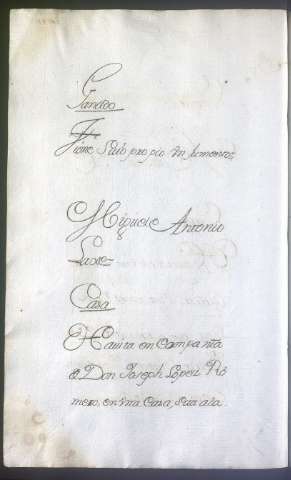 Ganado
Tiene Suio propio Un Jumento,
Miguel Antonio
Casa
Havita en Compania
de Don Joseph Lopez Ro
mero, en Una Casa, Sita ala